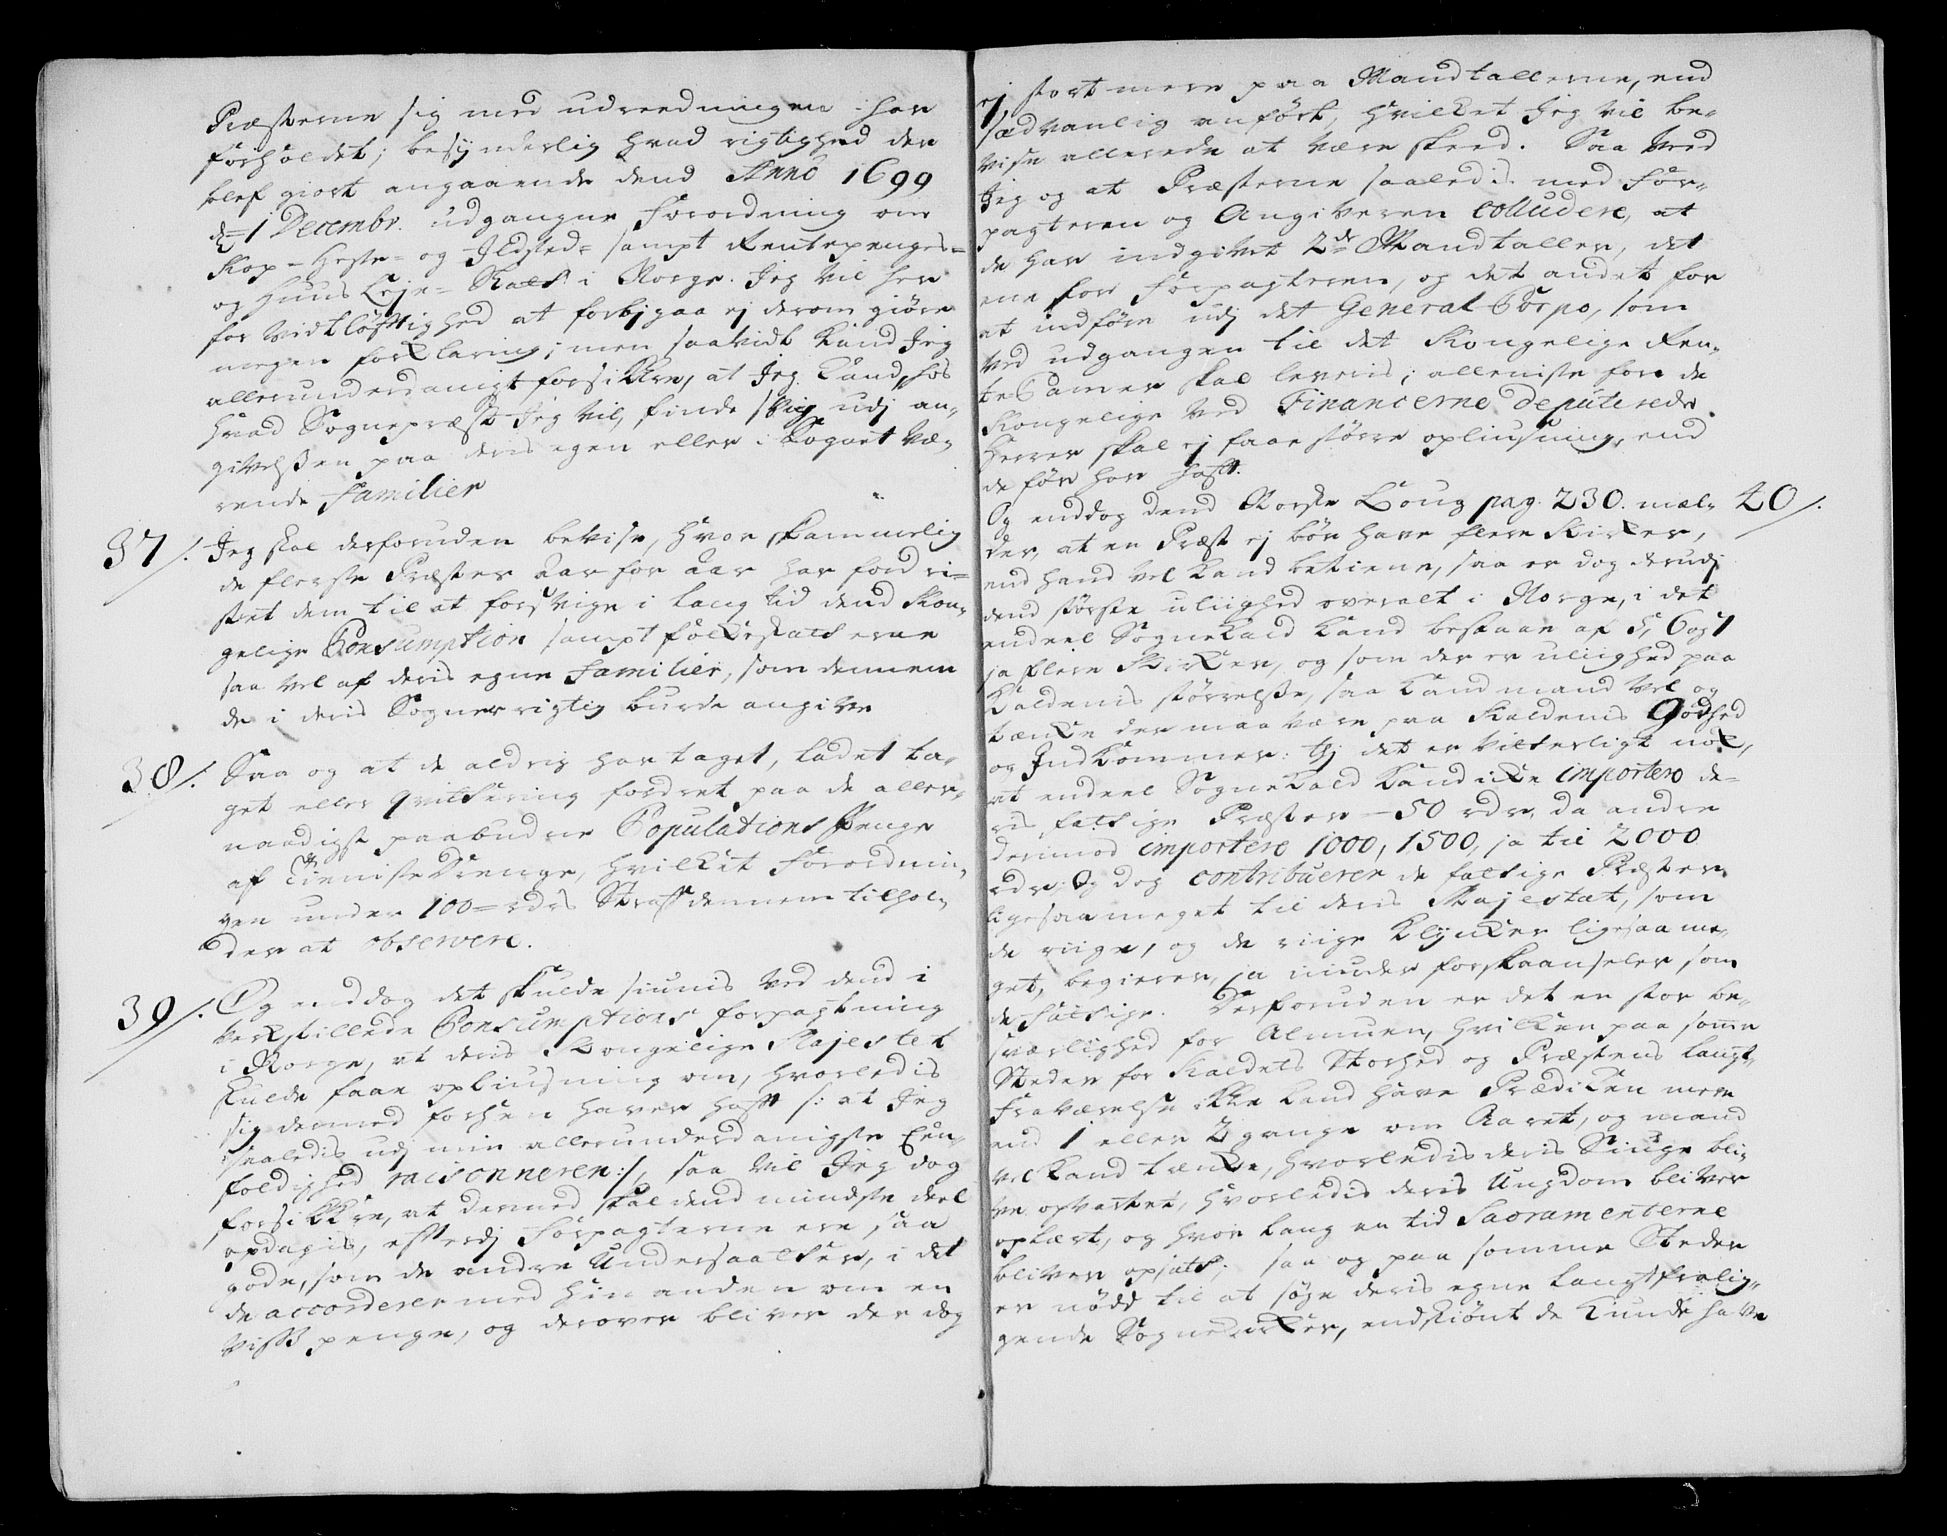 Præsterne sig med udreedningen har
forholdet; besynderlig hvad rigtighed der
blef giort angaaende dend Anno 1699
d. 1 Decembr. udgangne Forordning om
Kop- Heste- og Ildsted- sampt Rentepenges-
og Huus Leje- Skatt i Norge. Jeg vil her
for vidtløftighed at forbjgaa ej derom giøre
megen forklaring; men saavidt kand Jeg
allerunderdanigst forsikkre, at Jeg kand, hos
hvad Sognepræst Jeg vil, finde svig udj an-
givelsen paa deris egen eller i Sognet væ-
rende Familier
37/. Jeg skal desforuden bevise, hvor skammelig
de fleeste Præster Aar for Aar har fordri-
stet dem til at forsvige i lang tid dend Kon-
gelige Consumption sampt folkeskatterne
saa vel af deris egne Familier, som dennem
de i deris Sogner rigtig burde angive
38/. Saa og at de aldrig har taget, ladet ta-
get eller qvittering fordret paa de aller-
naadigst paabudne Copulations Penge
af TienisteDrenge, hvilket Forordnin-
gen under 100 rdrs Straff dennem tilhol-
der at observere.
39/. Og enddog det skulde siunis ved dend i
verkstillede Consumptions forpagtning
i Norge, at deris Kongelige Majestet
skulde faae opliusning om, hvorledis
sig dermed forhen haver hafft /: at Jeg
saaledis udj min allerunderdanigste Een-
foldighed raisonnerer :/, saa vil Jeg dog
forsikkre, at dermed skal dend mindste deel
opdagis, efterdj Forpagterne ere saa
gode, som de andre Undersaatter, i det
de accorderer med hin anden om en
viss penge, og derover bliver der dog
ej stort mere paa Mandtallerne, end
sædvanlig anført, hvilket Jeg vil be-
vise allerede at være skeed. Saa veed
Jeg og at Præsterne saaledis med For-
pagteren og Angiveren colludere, at
de har indgivet 2de Mandtaller, det
ene for Forpagteren, og det andet for
at indføre udj det General Corpo, som
ved udgangen til det Kongelige Ren-
te Camer skal leveris; alleniste fore de
Kongelige ved Financerne deputerede
Herrer skal ej faae større opliusning, end
de før har hafft.
Og enddog dend Norske Loug pag. 230. mel- 40/.
der, at en Præst ej bør have flere Kirker,
end hand vel kand betiene, saa er dog derudj
dend største uliighed overalt i Norge, i det
endeel Sognekald kand bestaae af 5, 6 og 7
ja flere Kirker, og som der er uliighed paa
Kaldenis størrelse, saa kand mand vel og
tænke der maa være paa Kaldenis Godhed
og Indkommer: thj det er vitterligt nok,
at endeel Sognekald kand icke importere de-
ris fattige Præster 50 rdr, da andre
derimod importere 1000, 1500, ja til 2000
rdr; Og dog contribuerer de fattige Præster
ligesaa meget til deris Majestæt, som
de riige, og de riige Klyncker ligesaa me-
get, begierer, ja minder forskaanseler som
de fattige. Desforuden er det en stor be-
sværlighed for Almuen, hvilken paa somme
Steder for Kaldets Storhed og Præstens langt-
fraværelse ikke kand have Prædiken mere
end 1 eller 2 gange om Aaret, og mand
vel kand tænke, hvorledis deris Siuge bli-
ve opvartet, hvorledis deris Ungdom bliver
oplært, og hvor lang en tid Sacramenterne
bliver opsatt; saa og paa somme Steder
er nødd til at søge deris egne langtfralig-
gende Sognekirker, endskiønt de kunde have